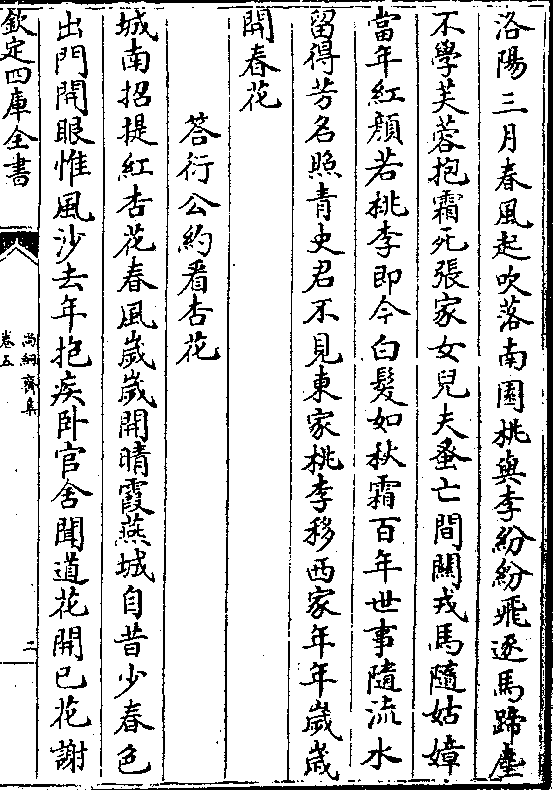 洛陽三月春風起吹落南園桃與李紛紛飛逐馬蹄塵
不學芙蓉抱霜死張家女兒夫蚤亡間關戎馬隨姑嫜
當年紅顏若桃李即今白髮如秋霜百年世事隨流水
留得芳名照青史君不見東家桃李移西家年年歲歲
開春花
答衍公約看杏花
城南招提紅杏花春風歲歲開晴霞燕城自昔少春色
出門開眼惟風沙去年抱疾卧官舍聞道花開已花謝
欽定四庫全書
尚絅齋集
卷五
二